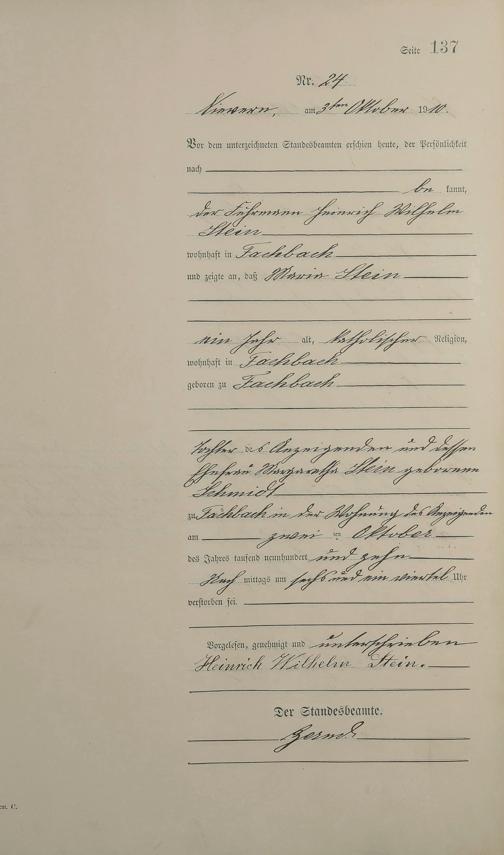 Seite 137
Nr. 24
Nievern, am 3ten Oktober 1910.
Vor dem unterzeichneten Standesbeamten erschien heute, der Persönlichkeit
nach
be kannt,
der Fuhrmann Heinrich Wilhelm
Stein
wohnhaft in Fachbach
und zeigte an, daß Maria Stein
ein Jahr alt, katholischer Religion,
wohnhaft in Fachbach
geboren zu Fachbach
Tochter des Anzeigenden und dessen
Ehefrau Margaretha Stein geborenen
Schmidt
zu Fachbach in der Wohnung des Anzeigenden
am zwei ten Oktober
des Jahres tausend neunhundert und zehn
Nach mittags um sechs und ein viertel Uhr
verstorben sei.
Vorgelesen, genehmigt und unterschrieben
Heinrich Wilhelm Stein.
Der Standesbeamte.
C.